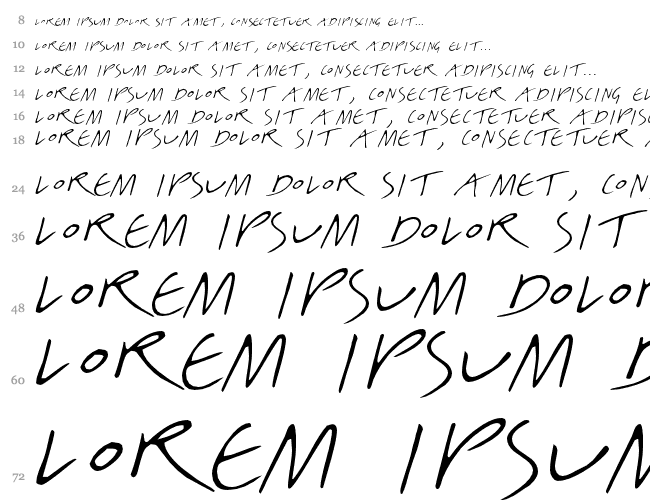 8 LOREM IPSUM DOLOR SIT AMET, CONSECTETUER ADIPISCING ELIT...
10 LOREM IPSUM DOLOR SIT AMET, CONSECTETUER ADIPISCING ELIT...
12 LOREM IPSUM DOLOR SIT AMET, CONSECTETUER ADIPISCING ELIT...
14 LOREM IPSUM DOLOR SIT AMET, CONSECTETUER ADIPISCING EL
16 LOREM IPSUM DOLOR SIT AMET, CONSECTETUER ADIPISC
18 LOREM IPSUM DOLOR SIT AMET, CONSECTETUER
24 LOREM IPSUM DOLOR SIT AMET, CON
36 LOREM IPSUM DOLOR SIT
48 LOREM IPSUM DOLOR
60 LOREM IPSUM D
72 LOREM IPSUM